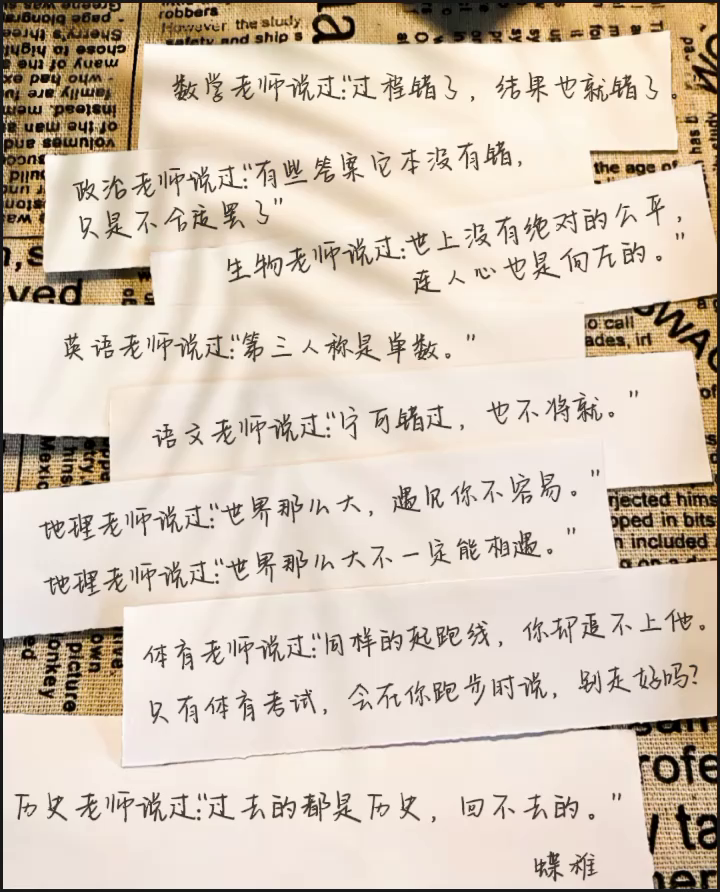 robbers
However the study
safety and ship s
数学老师说过:"过程错了，结果也就错了。
政治老师说过:"有些答案它本没有错，
只是不合适罢了"
the age of
生物老师说过:世上没有绝对的公平，
连人心也是向左的。"
o call
ades, irl
英语老师说过:"第三人称是单数。"
语文老师说过:"宁可错过，也不将就。"
地理老师说过:"世界那么大，遇见你不容易。"
地理老师说过:"世界那么大不一定能相遇。"
jected hims
pped in bits
n included
体育老师说过:"同样的起跑线，你却追不上他。
只有体育考试，会在你跑步时说，别走好吗?
历史老师说过:"过去的都是历史，回不去的。"
蝶稚